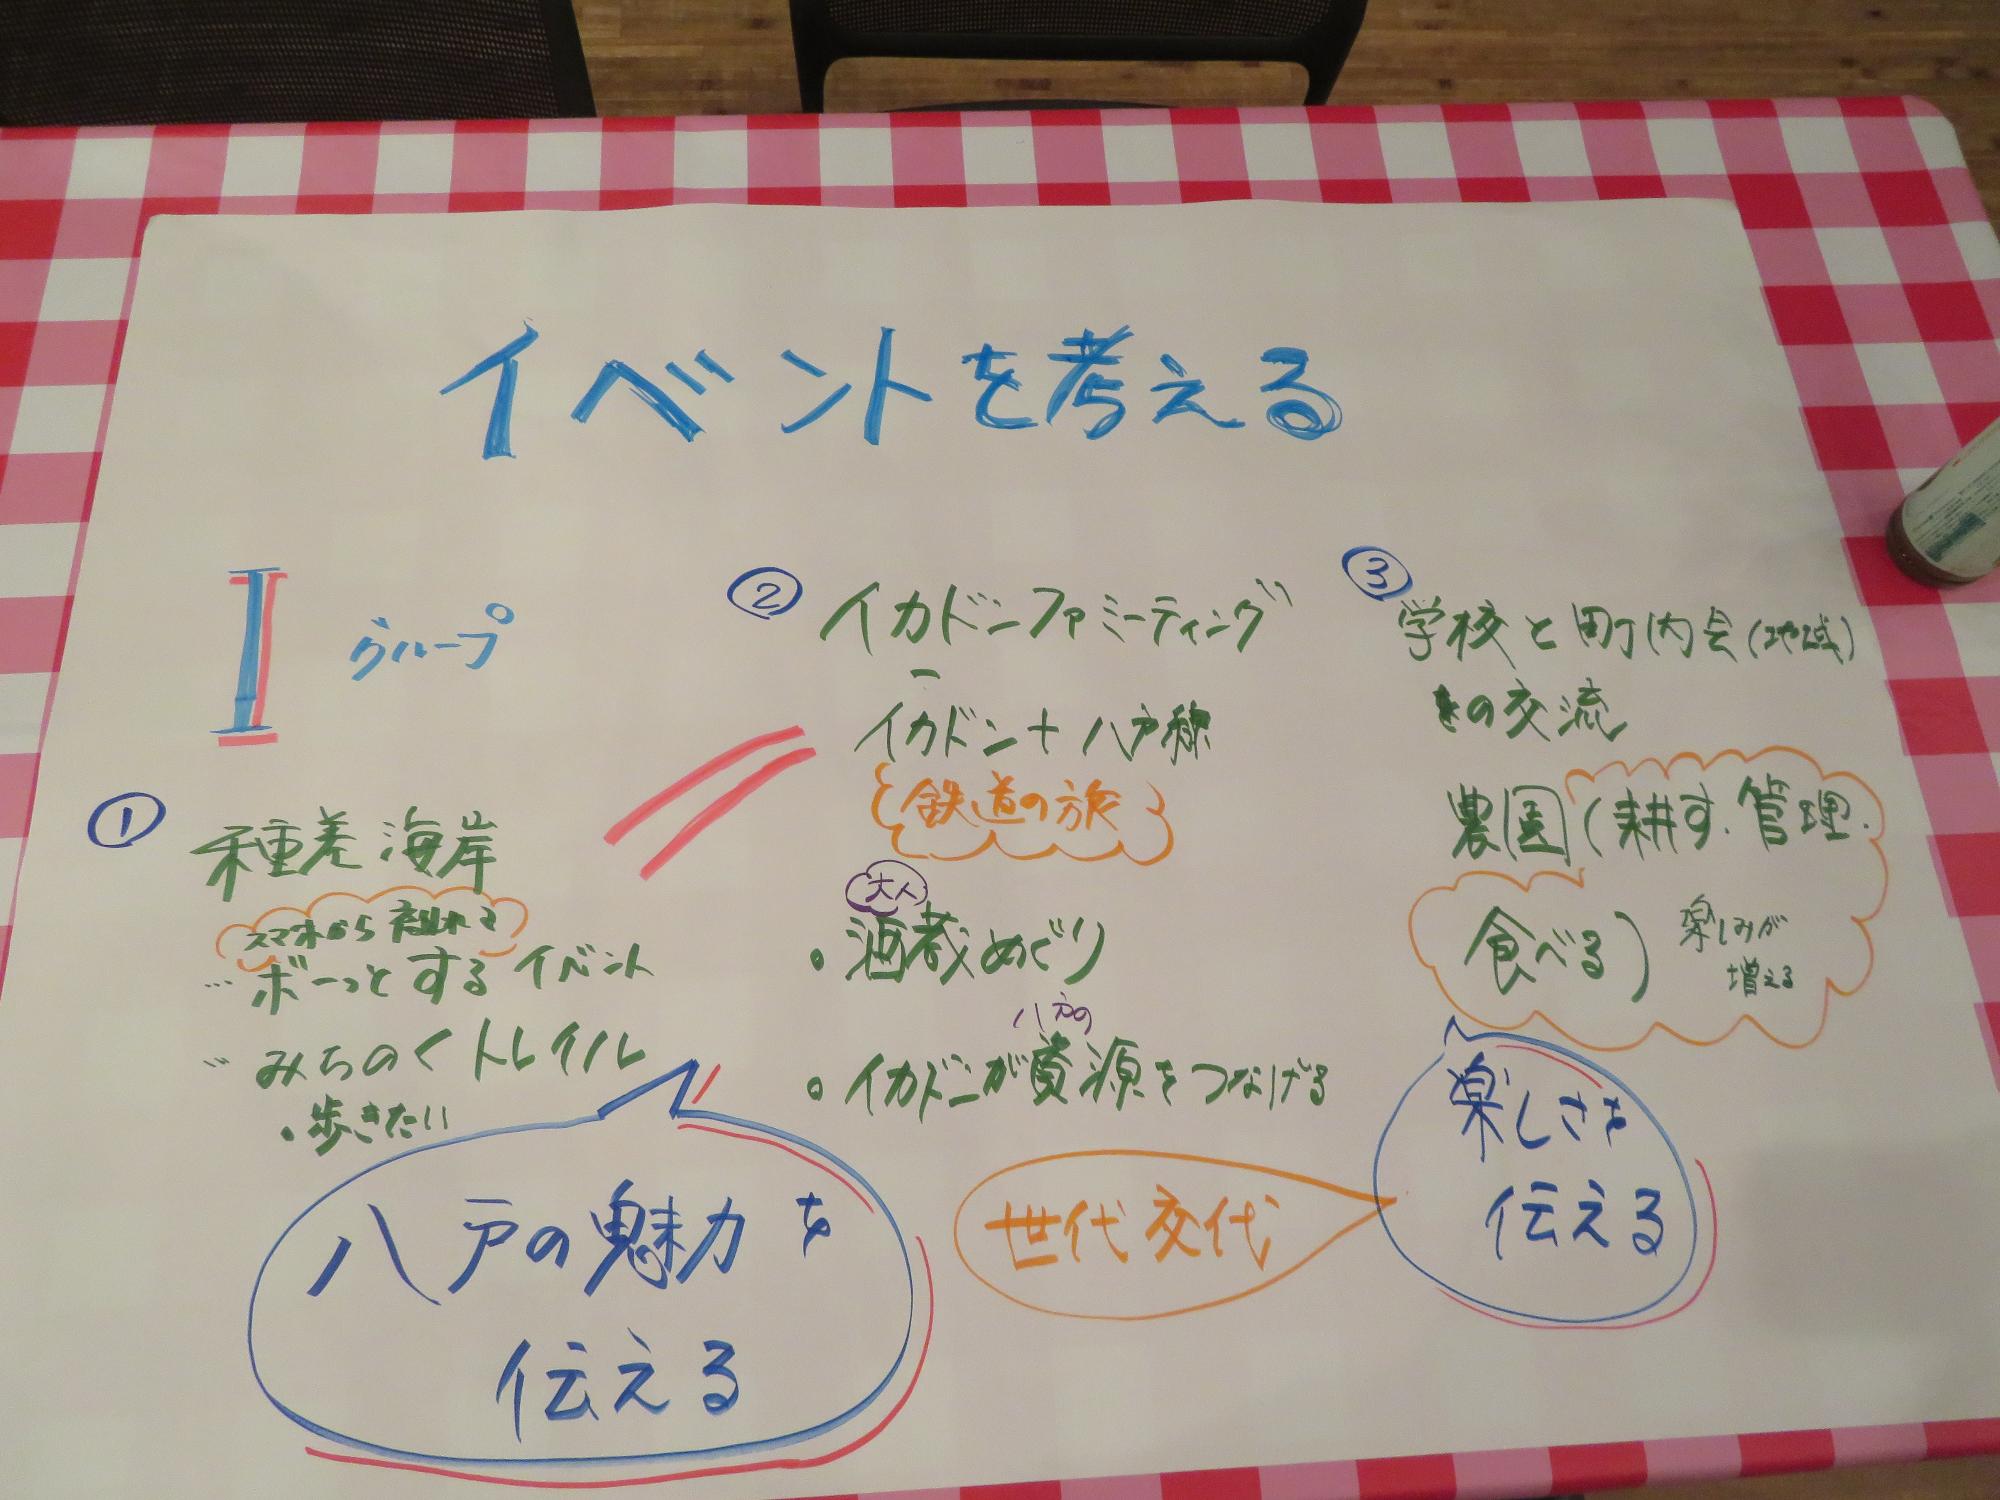 イベントを考える
I グループ
①
種差海岸
スマホから離れて
…ボーっとするイベント
…みちのくトレイル
・歩きたい
八戸の魅力を
伝える
②
イカドンファミーティング
イカドン+八戸線
鉄道の旅
大人
・酒蔵めぐり
八戸の
・イカドンが資源をつなげる
世代交代
③
学校と町内会(地域)
の交流
農園(耕す、管理、
食べる)
楽しみが
増える
楽しさを
伝える